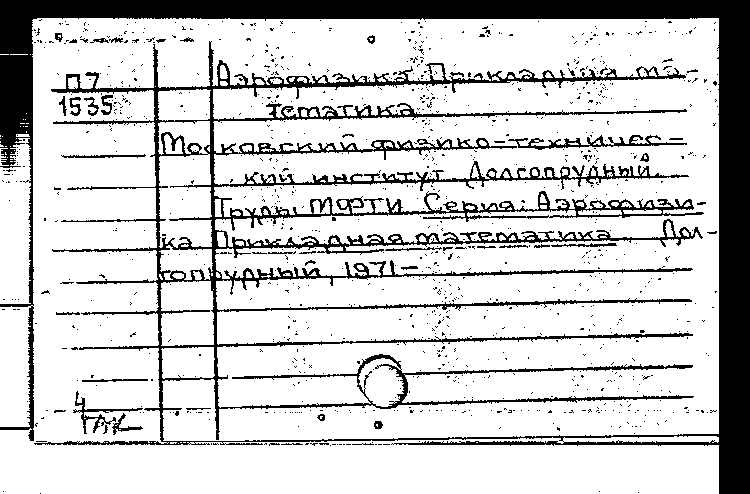 П7
1535
Аэрофизика Прикладная ма-
тематика
Московский физико-техничес-
кий институт Долгопрудный.
Труды МФТИ. Серия: Аэрофизи-
ка Прикладная математика Дол-
гопрудный, 1971-
4